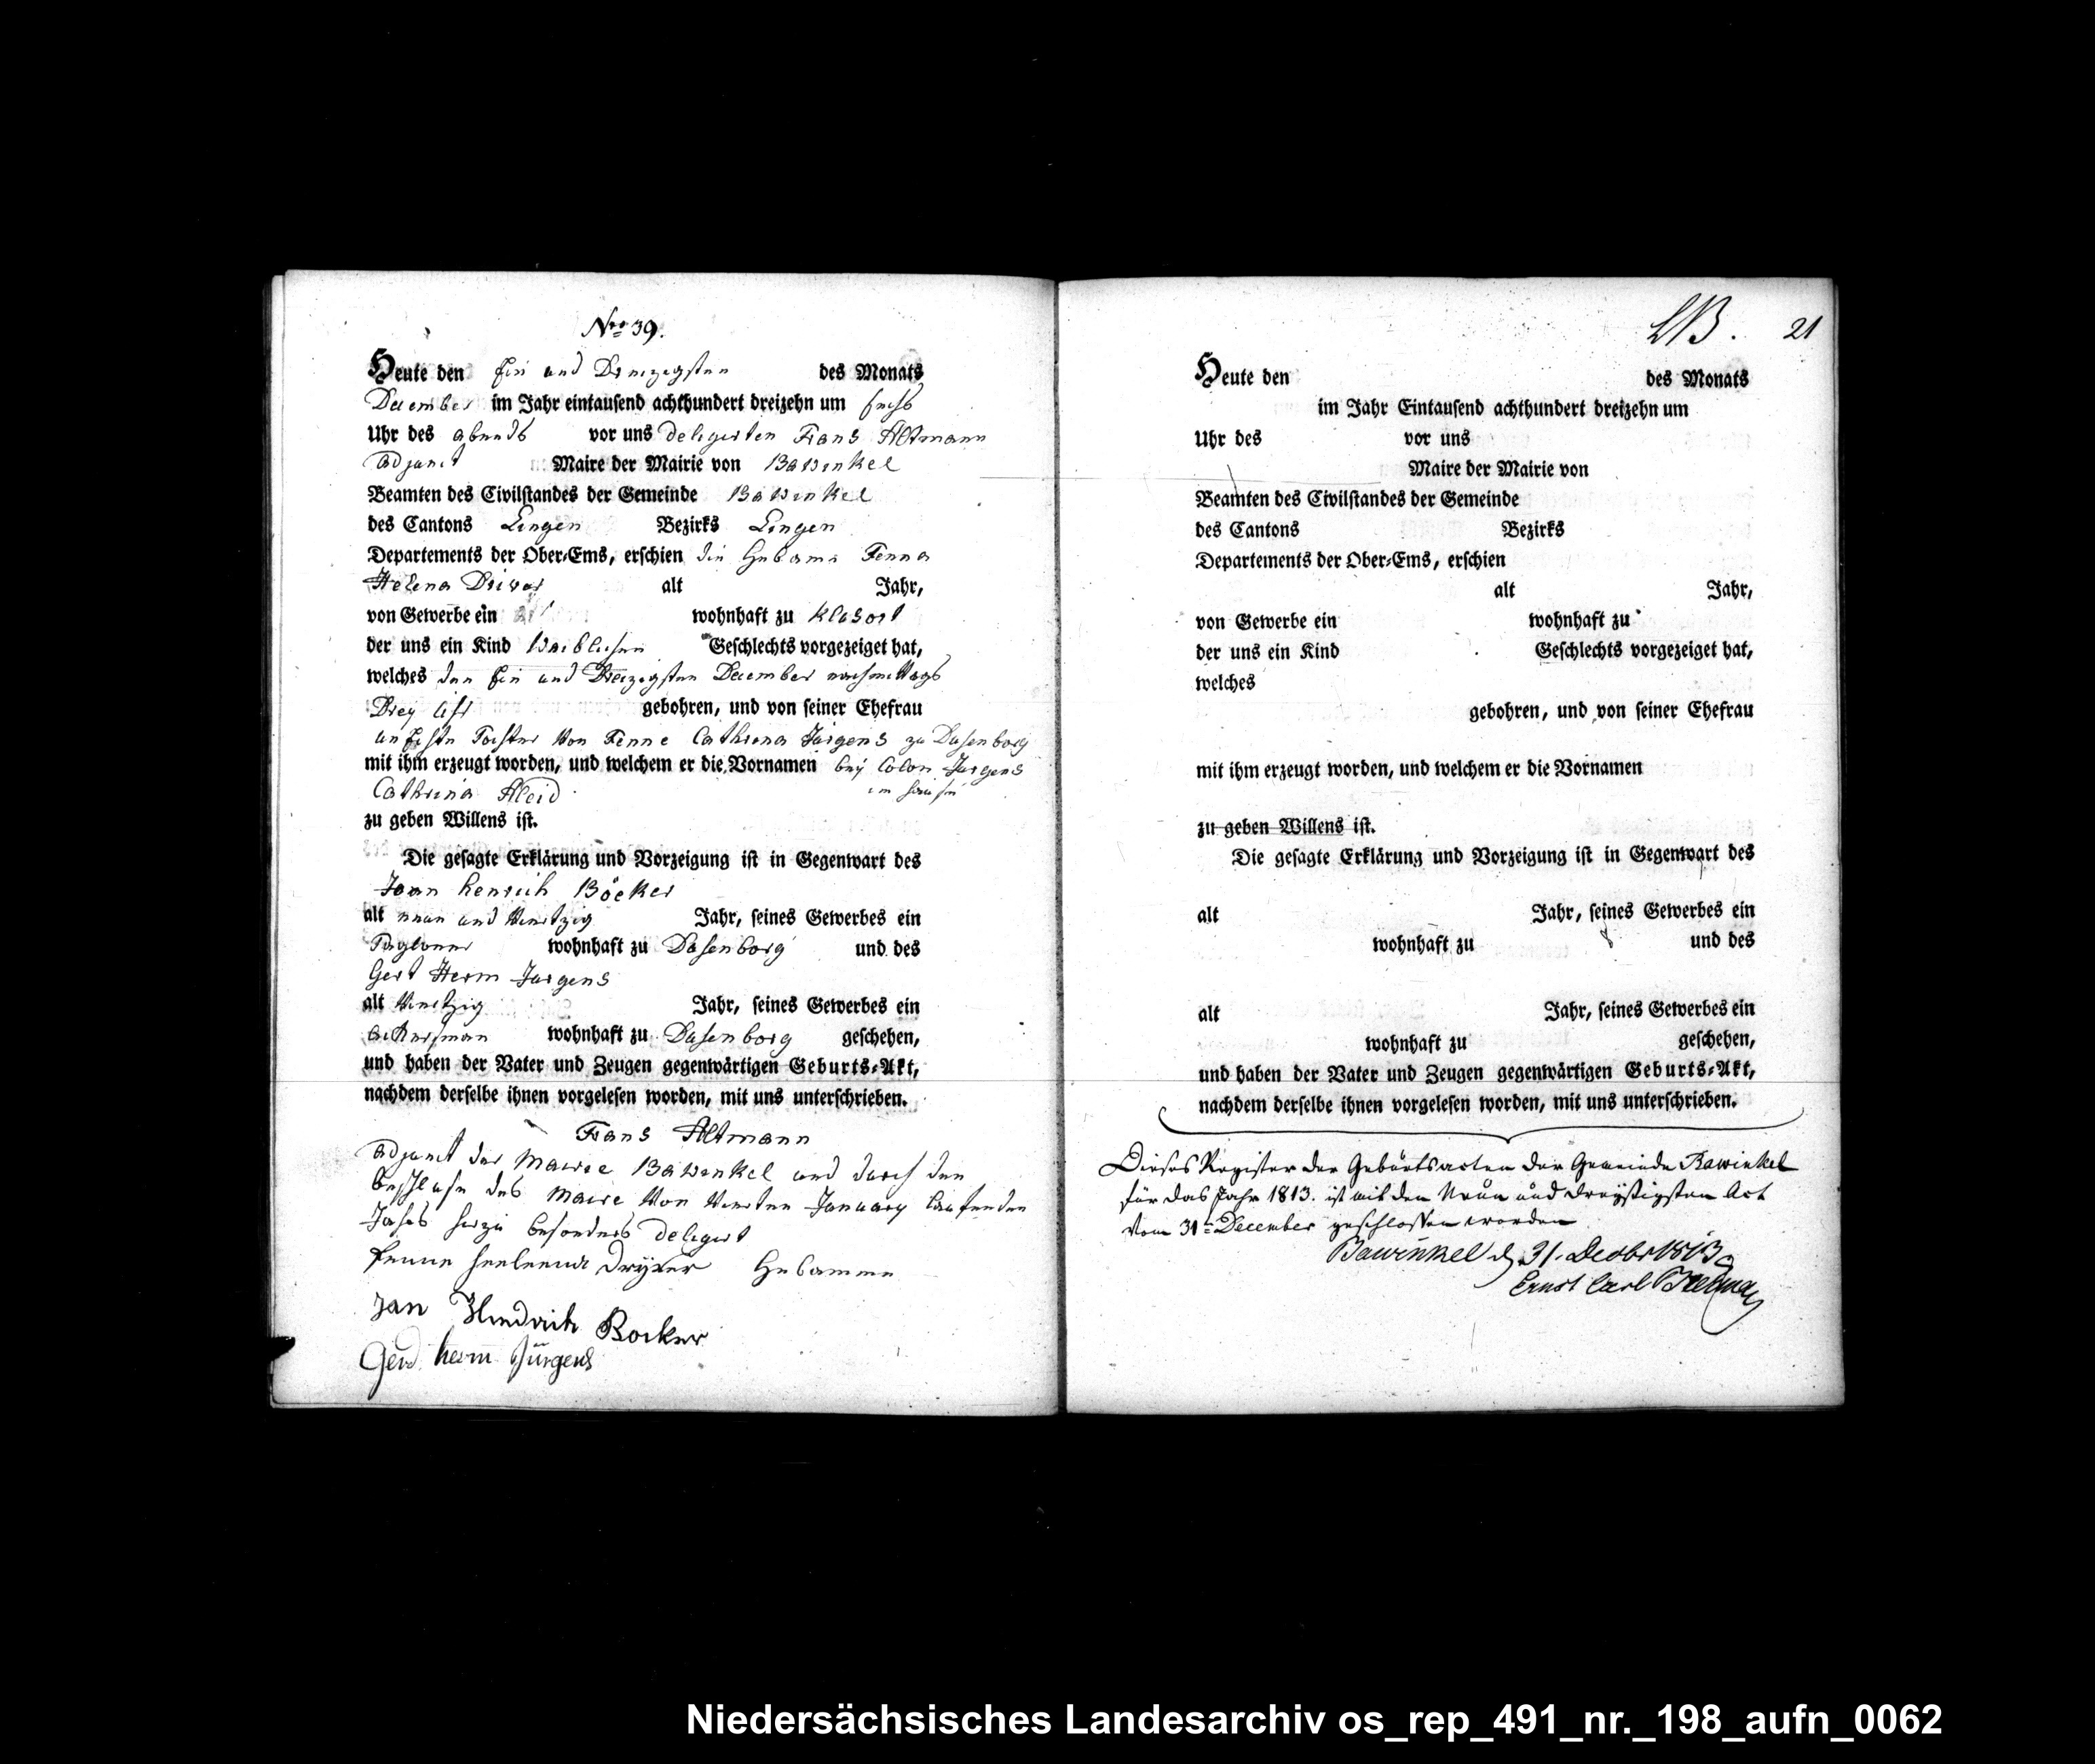 Nro 39.
Heute den Ein und Dreizigsten des Monats
December im Jahr eintausend achthundert dreizehn um sechs
Uhr des abends vor uns deligirten Frans Altmann
Adjunct Maire der Mairie von Bawinkel
Beamten des Civilstandes der Gemeinde Bawinkel
des Cantons Lingen Bezirks Lingen
Departements der Ober-Ems, erschien die Hebame Fenna
Helena Driver alt Jahr,
von Gewerbe ein wohnhaft zu Klosort
der uns ein Kind Weiblichen Geschlechts vorgezeiget hat,
welches den Ein und Dreizigsten December nachmittags
Drey Uhr gebohren, und von seiner Ehefrau
Tochter von Fenne Cathrina Jurgens zu Dusenborg
mit ihm erzeugt worden, und welchem er die Vornamen bey Colon Jurgens
im hause
Cathrina Aleid
zu geben Willens ist.
Die gesagte Erklärung und Vorzeigung ist in Gegenwart des
Joan Henrich Böcker
alt neun und Viertzig Jahr, seines Gewerbes ein
Taglöner wohnhaft zu Dusenborg und des
Gert Herm Jurgens
alt Viertzig Jahr, seines Gewerbes ein
Ackersman wohnhaft zu Dusenborg geschehen,
und haben der Vater und Zeugen gegenwärtigen Geburts-Akt,
nachdem derselbe ihnen vorgelesen worden, mit uns unterschrieben.
Frans Altmann
Adjunct der Mairie Bawinkel und durch den
beschluse des Maire von Vierten January laufenden
Jahrs hierzu besonders deligirt
Fenne Heelena Dryver Hebamme
Jan Hindrick Bocker
Gerd herm Jürgens
LB. 21
Heute den des Monats
im Jahr Eintausend achthundert dreizehn um
Uhr des vor uns
Maire der Mairie von
Beamten des Civilstandes der Gemeinde
des Cantons Bezirks
Departements der Ober-Ems, erschien
alt Jahr,
von Gewerbe ein wohnhaft zu
der uns ein Kind Geschlechts vorgezeiget hat,
welches
gebohren, und von seiner Ehefrau
mit ihm erzeugt worden, und welchem er die Vornamen
zu geben Willens ist.
Die gesagte Erklärung und Vorzeigung ist in Gegenwart des
alt Jahr, seines Gewerbes ein
wohnhaft zu und des
alt Jahr, seines Gewerbes ein
wohnhaft zu geschehen,
und haben der Vater und Zeugen gegenwärtigen Geburts-Akt,
nachdem derselbe ihnen vorgelesen worden, mit uns unterschrieben.
Dieses Register der Geburtsacten der Gemeinde Bawinkel
für das Jahr 1813. ist mit den Neun und dreyßigsten Act
vom 31ten December geschlossen worden
Bawinkel d. 31. Decbr 1813
Ernst Carl
Niedersächsisches Landesarchiv os_rep_491_nr._198_aufn_0062